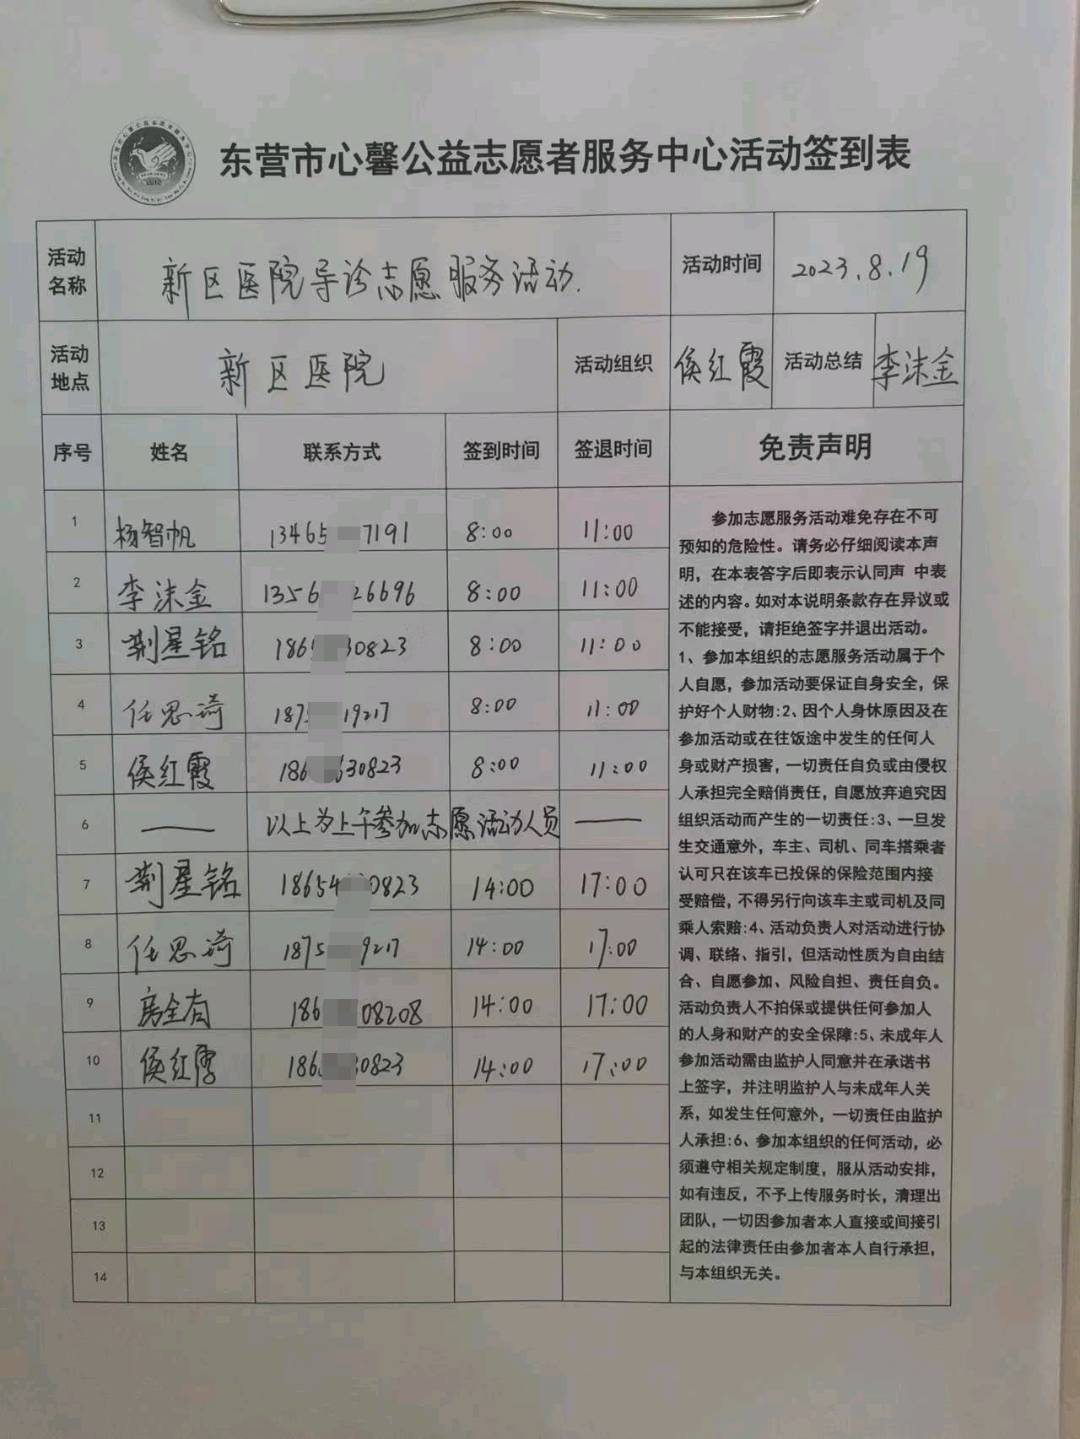 东营市心馨公益志愿者服务中心活动签到表
活动名称 新区医院导诊志愿服务活动. 活动时间 2023.8.19
活动地点 新区医院 活动组织 侯红霞 活动总结 李沫金
序号 姓名 联系方式 签到时间 签退时间 免责声明
1 杨智帆 13465 7191 8:00 11:00
2 李沫金 1356 26696 8:00 11:00
3 荆星铭 186 30823 8:00 11:00
4 任思琦 187 19217 8:00 11:00
5 侯红霞 186 630823 8:00 11:00
6 —— 以上为上午参加志愿活动人员 ——
7 荆星铭 18654 0823 14:00 17:00
8 任思琦 1875 9217 14:00 17:00
9 房全有 186 08208 14:00 17:00
10 侯红霞 186 30823 14:00 17:00
11
12
13
14
参加志愿服务活动难免存在不可
预知的危险性。请务必仔细阅读本声
明，在本表答字后即表示认同声 中表
述的内容。如对本说明条款存在异议或
不能接受，请拒绝签字并退出活动。
1、参加本组织的志愿服务活动属于个
人自愿，参加活动要保证自身安全，保
护好个人财物:2、因个人身休原因及在
参加活动或在往饭途中发生的任何人
身或财产损害，一切责任自负或由侵权
人承担完全赔俏责任，自愿放弃追究因
组织活动而产生的一切责任:3、一旦发
生交通意外，车主、司机、同车搭乘者
认可只在该车已投保的保险范围内接
受赔偿，不得另行向该车主或司机及同
乘人索赔:4、活动负责人对活动进行协
调、联络、指引，但活动性质为自由结
合、自愿参加、风险自担、责任自负。
活动负责人不拍保或提供任何参加人
的人身和财产的安全保障:5、未成年人
参加活动需由监护人同意并在承诺书
上签字，并注明监护人与未成年人关
系，如发生任何意外，一切责任由监护
人承担:6、参加本组织的任何活动，必
须遵守相关规定制度，服从活动安排，
如有违反，不予上传服务时长，清理出
团队，一切因参加者本人直接或间接引
起的法律责任由参加者本人自行承担，
与本组织无关。